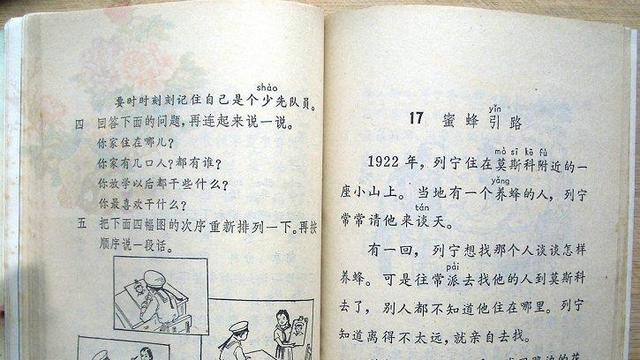 shào
要时时刻刻记住自己是个少先队员。
四 回答下面的问题,再连起来说一说。
你家住在哪儿?
你家有几口人?都有谁?
你放学以后都干些什么?
你最喜欢干什么?
五 把下面四幅图的次序重新排列一下。再按
顺序说一段话。
yǐn
17 蜜蜂引路
mò sī kē fù
1922年,列宁住在莫斯科附近的一
yǎng
座小山上。当地有一个养蜂的人,列宁
tán
常常请他来谈天。
有一回,列宁想找那个人谈谈怎样
pài
养蜂。可是往常派去找他的人到莫斯科
去了,别人都不知道他住在哪里。列宁
知道离得不太远,就亲自去找。